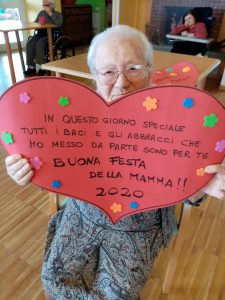 IN QUESTO GIORNO SPECIALE
TUTTI I BACI E GLI ABBRACCI CHE
HO MESSO DA PARTE SONO PER TE
BUONA FESTA
DELLA MAMMA!!
2020